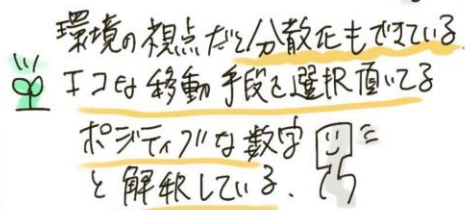 環境の視点だと分散化もできている
エコな移動手段を選択頂いてる
ポジティブな数字
と解釈している、